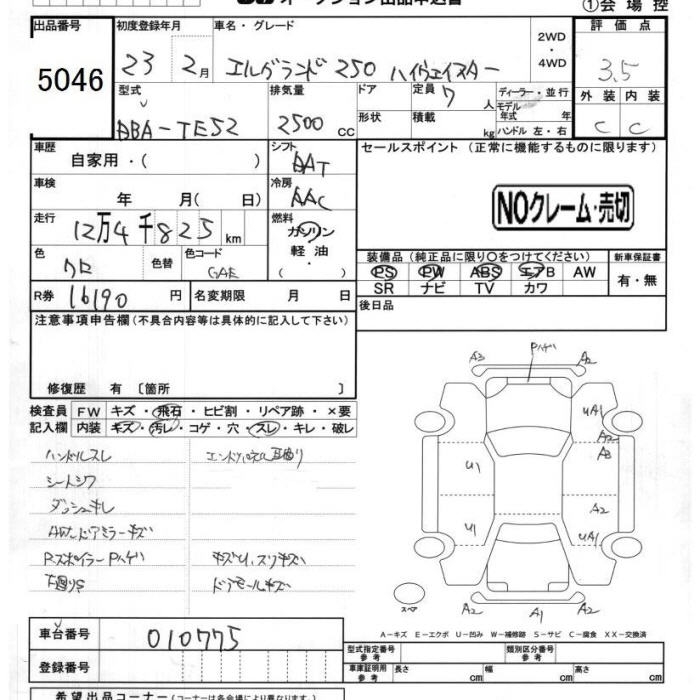 ①会場控
出品番号 初度登録年月 車名・グレード 2WD・4WD 評価点
5046 23 2月 エルグランド 250 ハイウェイスター 3.5
型式 排気量 ドア 定員 7人 ディーラー・並行 外装 内装
モデル年式 年
DBA-TE52 2500 cc 形状 積載 kg ハンドル 左・右 C C
車歴 シフト セールスポイント (正常に機能するものに限ります)
自家用・( ) AAT
車検 冷房
年 月( 日) AAC NOクレーム・売切
走行 燃料
12万4千825km ガソリン
軽油
・( )
色 色替 色コード 装備品 (純正品に限り○をつけてください) 新車保証書
クロ GAE PS PW ABS エアB AW 有・無
SR ナビ TV カワ
R券 16190円 名変期限 月 日 後日品
注意事項申告欄 (不具合内容等は具体的に記入して下さい)
修復歴 有 〔箇所 〕
検査員 FW キズ・飛石・ヒビ割・リペア跡・×要
記入欄 内装 キズ・汚レ・コゲ・穴・スレ・キレ・破レ
ハンドルスレ
シートシワ
ダッシュキレ
ドアミラーキズ
Rスポイラー Pハゲ キズU、スリキズ
下廻りS ドアモールキズ
Pハゲ
A3 A2
UA1
A2
U1 A3
A2
U1 UA1
スペア A2 A1 A2
A-キズ E-エクボ U-凹み W-補修跡 S-サビ C-腐食 XX-交換済
車台番号 010775
型式指定番号 参考 類別区分番号 参考
登録番号 車庫証明用 参考 長さ cm 幅 cm 高さ cm
希望出品コーナー (コーナーは各会場により異なります)